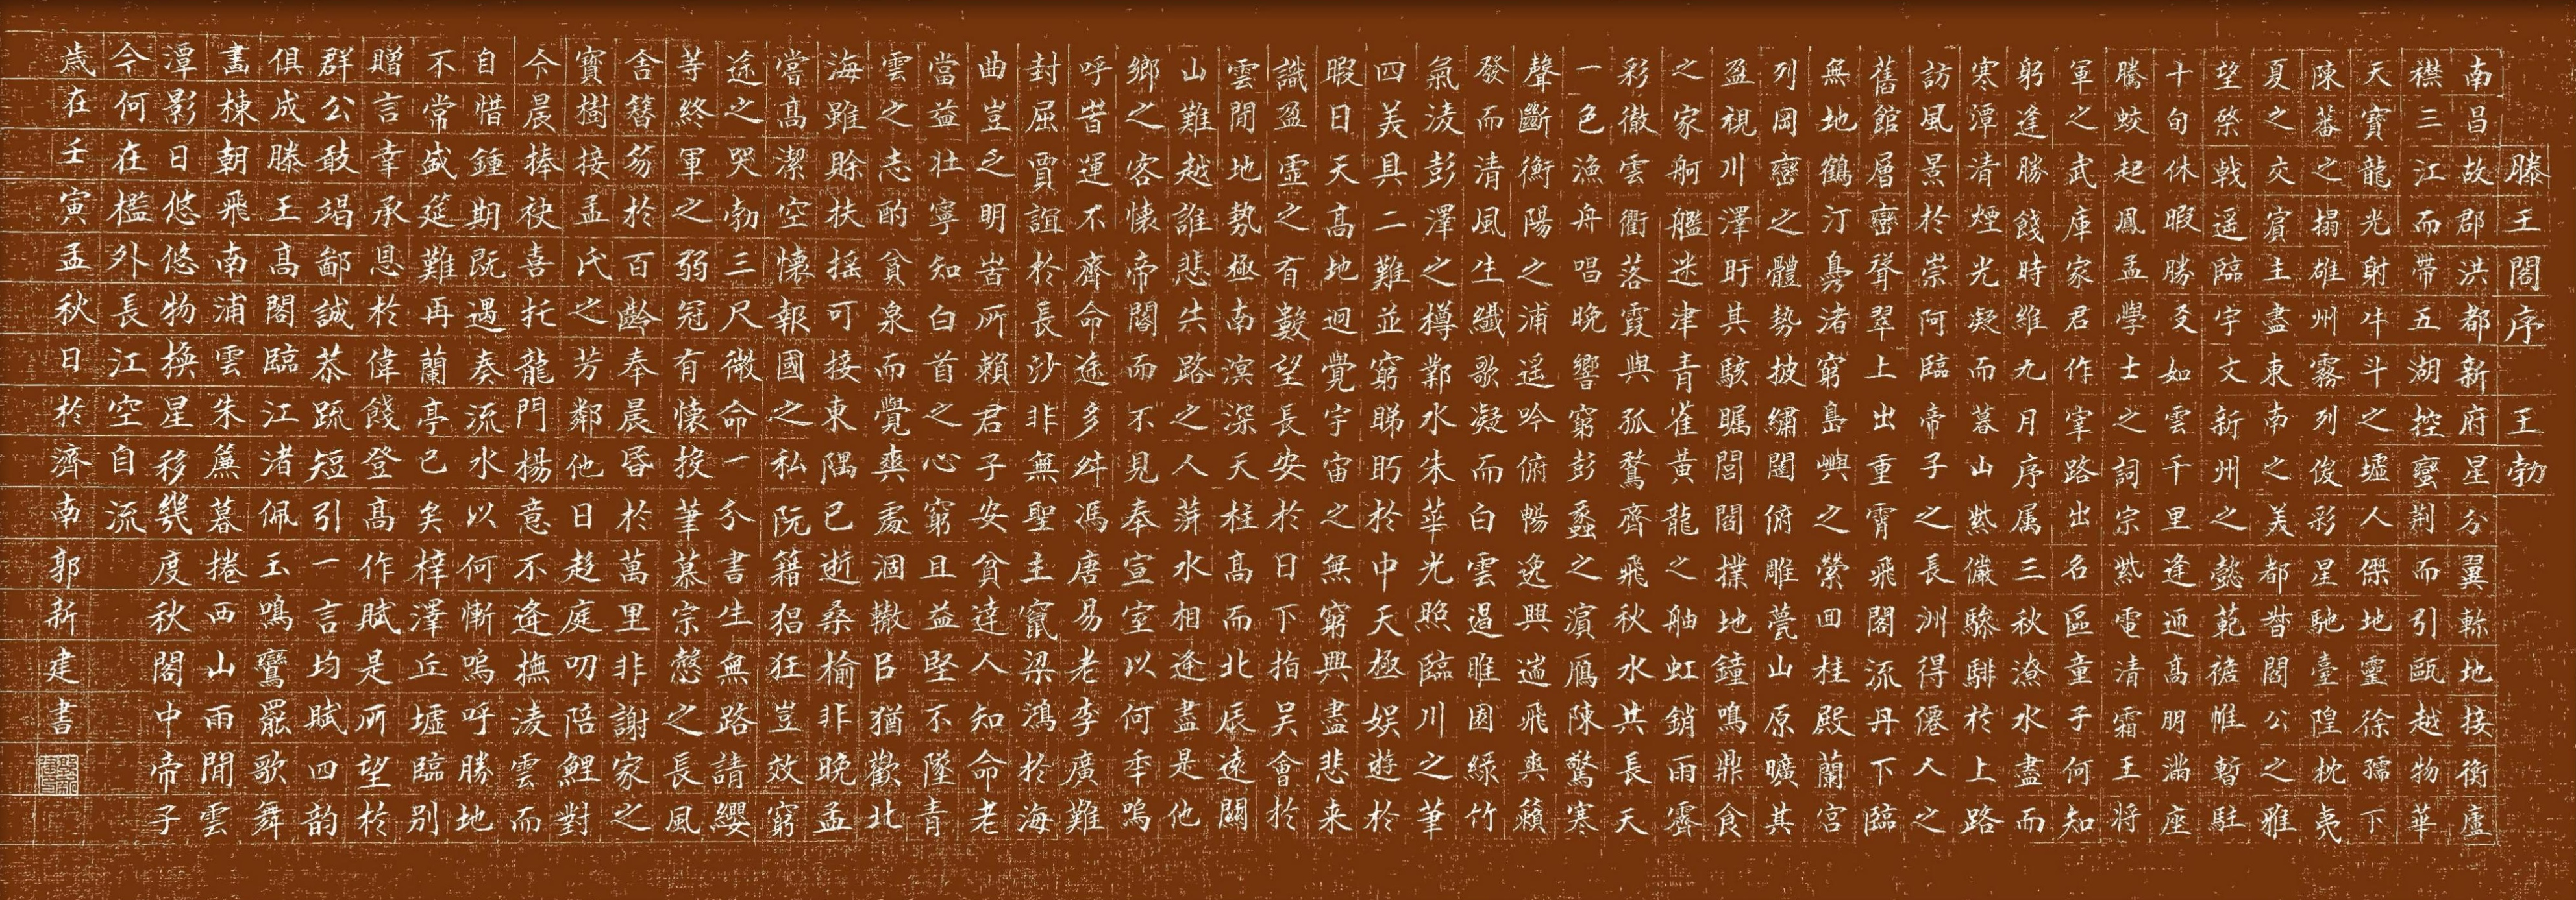 滕王閣序 王勃
南昌故郡洪都新府星分翼軫地接衡廬
襟三江而帶五湖控蠻荆而引甌越物華
天寶龍光射牛斗之墟人傑地靈徐孺下
陳蕃之榻雄州霧列俊彩星馳臺隍枕夷
夏之交賓主盡東南之美都督閻公之雅
望棨戟遥臨宇文新州之懿範襜帷暫駐
十旬休暇勝友如雲千里逢迎高朋滿座
騰蛟起鳳孟學士之詞宗紫電清霜王將
軍之武庫家君作宰路出名區童子何知
躬逢勝餞時維九月序属三秋潦水盡而
寒潭清煙光凝而暮山紫儼驂騑於上路
訪風景於崇阿臨帝子之長洲得僊人之
舊館層巒聳翠上出重霄飛閣流丹下臨
無地鶴汀鳧渚窮島嶼之縈回桂殿蘭宮
列岡巒之體勢披繡闥俯雕甍山原曠其
盈視川澤盱其駭矚閭閻撲地鐘鳴鼎食
之家舸艦迷津青雀黃龍之舳虹銷雨霽
彩徹雲衢落霞與孤鶩齊飛秋水共長天
一色漁舟唱晚響窮彭蠡之濱雁陳驚寒
聲斷衡陽之浦遥吟俯暢逸興遄飛爽籟
發而清風生纖歌凝而白雲遏睢園緑竹
氣凌彭澤之樽鄴水朱華光照臨川之筆
四美具二難並窮睇眄於中天極娱遊於
暇日天高地迥覺宇宙之無窮興盡悲来
識盈虛之有數望長安於日下指吴會於
雲間地勢極南溟深天柱高而北辰遠關
山難越誰悲失路之人萍水相逢盡是他
鄉之客懷帝閽而不見奉宣室以何年嗚
呼旹運不齊命途多舛馮唐易老李廣難
封屈賈誼於長沙非無聖主竄梁鴻於海
曲豈乏明旹所賴君子安貧達人知命老
當益壯寧知白首之心窮且益堅不墜青
雲之志酌貪泉而覺爽處涸轍以猶歡北
海雖賒扶摇可接東隅已逝桑榆非晚孟
嘗高潔空懷報國之私阮籍猖狂豈效窮
途之哭勃三尺微命一介書生無路請纓
等終軍之弱冠有懷投筆慕宗慤之長風
舍簪笏於百齡奉晨昏於萬里非謝家之
寶樹接孟氏之芳鄰他日趍庭叨陪鯉對
今晨捧袂喜托龍門楊意不逢撫凌雲而
自惜鍾期既遇奏流水以何慚嗚呼勝地
不常盛筵難再蘭亭已矣梓澤丘墟臨別
贈言幸承恩於偉餞登高作賦是所望於
群公敢竭鄙誠恭疏短引一言均賦四韵
俱成滕王高閣臨江渚佩玉鳴鸞罷歌舞
畫棟朝飛南浦雲朱簾暮捲西山雨閒雲
潭影日悠悠物換星移幾度秋閣中帝子
今何在檻外長江空自流
歲在壬寅孟秋日於濟南郭新建書